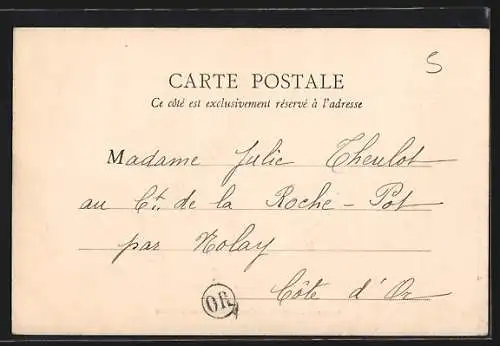 5
CARTE POSTALE
Ce côté est exclusivement réservé à l'adresse
Madame Julie Theulot
au Ct. de la Roche-Pot
par Nolay
Côte d'Or
OR